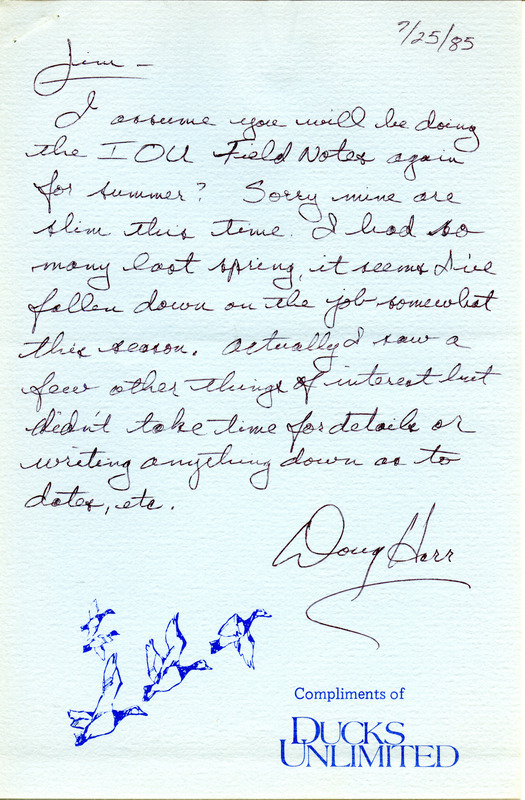 7/25/85
Jim -
I assume you will be doing
the IOU Field Notes again
for summer? Sorry mine are
slim this time. I had so
many last spring, it seems I've
fallen down on the job somewhat
this season. Actually I saw a
few other things of interest but
didn't take time for details or
writing anything down as to
dates, etc.
Doug Harr
Compliments of
DUCKS
UNLIMITED